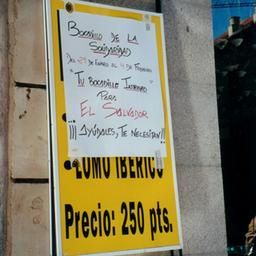 BOCADILLO DE LA
SOLIDARIDAD
DEL 29 DE ENERO AL 4 DE FEBRERO
"TU BOCADILLO INTEGRO"
PARA
EL SALVADOR
¡¡¡ AYÚDALES, TE NECESITAN!!!
LOMO IBERICO
Precio: 250 pts.